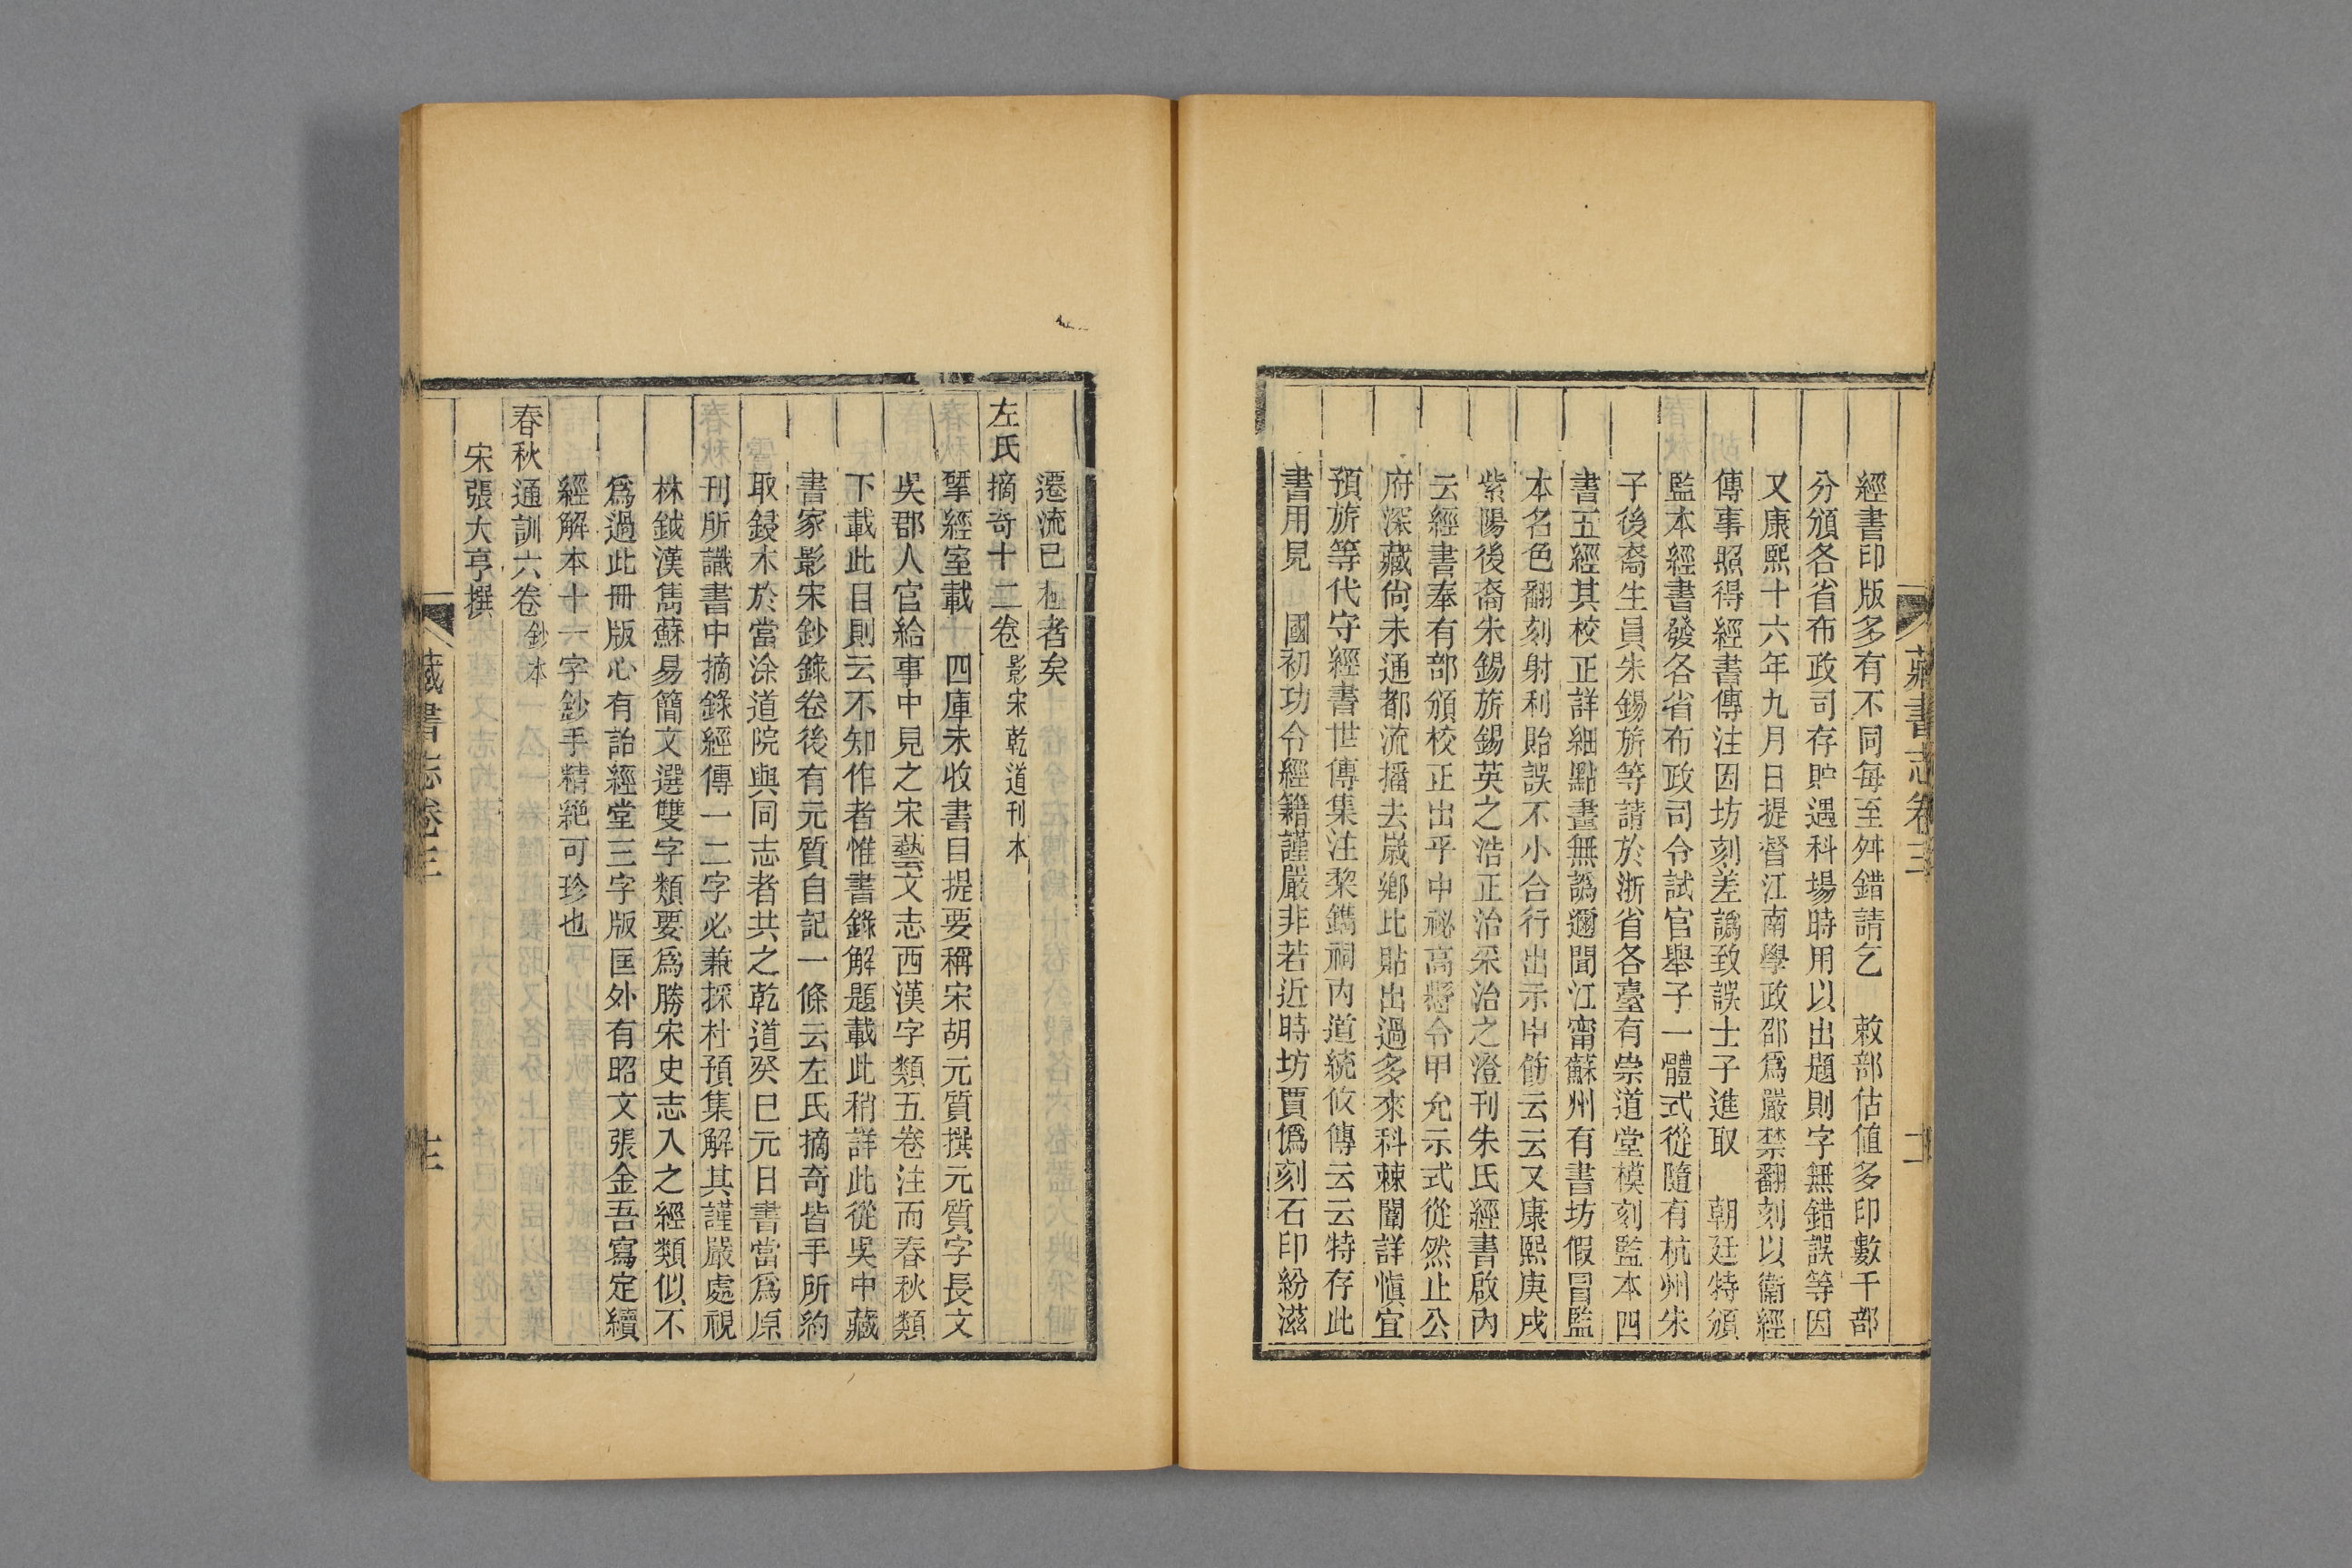 藏書志卷三
經書印版多有不同每至舛錯請乞　敕部估值多印數千部
分頒各省布政司存貯遇科場時用以出題則字無錯誤等因
又康熙十六年九月日提督江南學政邵爲嚴禁翻刻以衞經
傳事照得經書傳注因坊刻差譌致誤士子進取　朝廷特頒
監本經書發各省布政司令試官舉子一體式從隨有杭州朱
子後裔生員朱錫旂等請於浙省各臺有崇道堂模刻監本四
書五經其校正詳細點畫無譌邇聞江甯蘇州有書坊假冒監
本名色翻刻射利貽誤不小合行出示申飭云云又康熙庚戌
紫陽後裔朱錫旂錫英之浩正治采治之澄刊朱氏經書啟內
云經書奉有部頒校正出乎中祕高懸令甲允示式從然止公
府深藏尙未通都流播去歲鄉比貼出過多來科棘闈詳愼宜
預旂等代守經書世傳集注棃鐫祠內道統攸傳云云特存此
書用見　國初功令經籍謹嚴非若近時坊賈僞刻石印紛滋
遷流已極者矣
左氏摘奇十二卷影宋乾道刊本
揅經室載　四庫未收書目提要稱宋胡元質撰元質字長文
吳郡人官給事中見之宋藝文志西漢字類五卷注而春秋類
下載此目則云不知作者惟書錄解題載此稍詳此從吳中藏
書家影宋鈔錄卷後有元質自記一條云左氏摘奇皆手所約
取鋟木於當涂道院與同志者共之乾道癸巳元日書當爲原
刊所識書中摘錄經傳一二字必兼採杜預集解其謹嚴處視
林鉞漢雋蘇易簡文選雙字類要爲勝宋史志入之經類似不
爲過此冊版心有詒經堂三字版匡外有昭文張金吾寫定續
經解本十一字鈔手精絕可珍也
春秋通訓六卷鈔本
宋張大亨撰
藏書志卷三